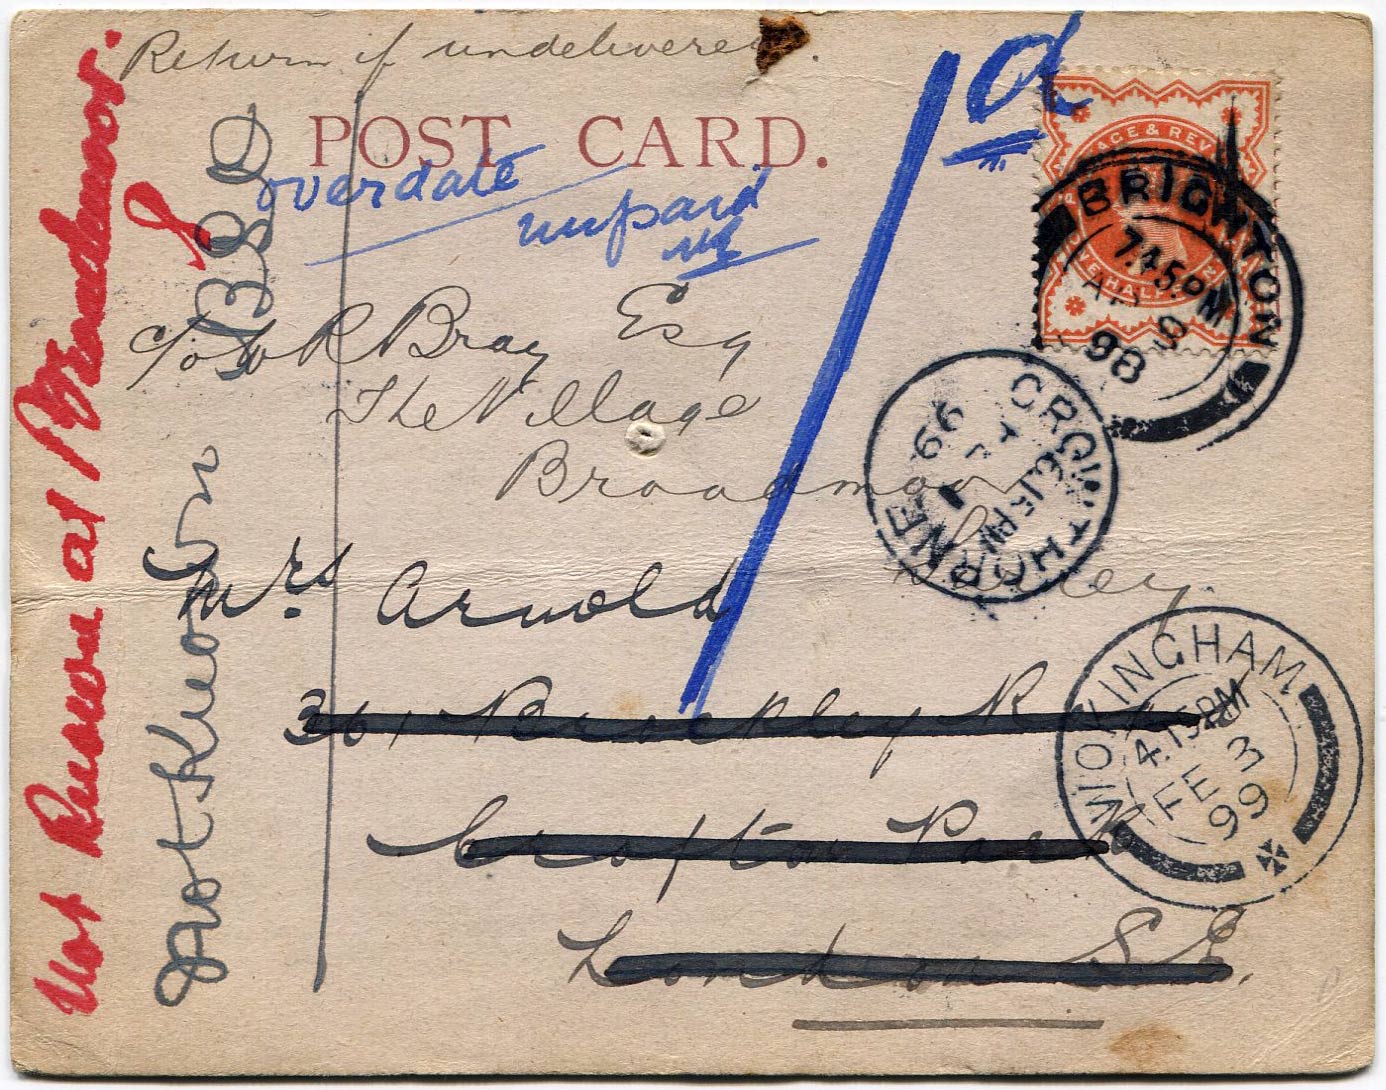 Return if undelivered.
POST CARD.
1d
overdate
unpaid
c/o W R Bray Esq
The Village
Broadmoor
Mrs Arnold
361 Brockley R
Crofton Park
London S.E.
Not Known at Broadmoor.
Not Known
POSTAGE & REVENUE
HALFPENNY
BRIGHTON
7.45.PM
98
CROWTHORNE
6.15PM
99
WOKINGHAM
4.15PM
FE 3
99